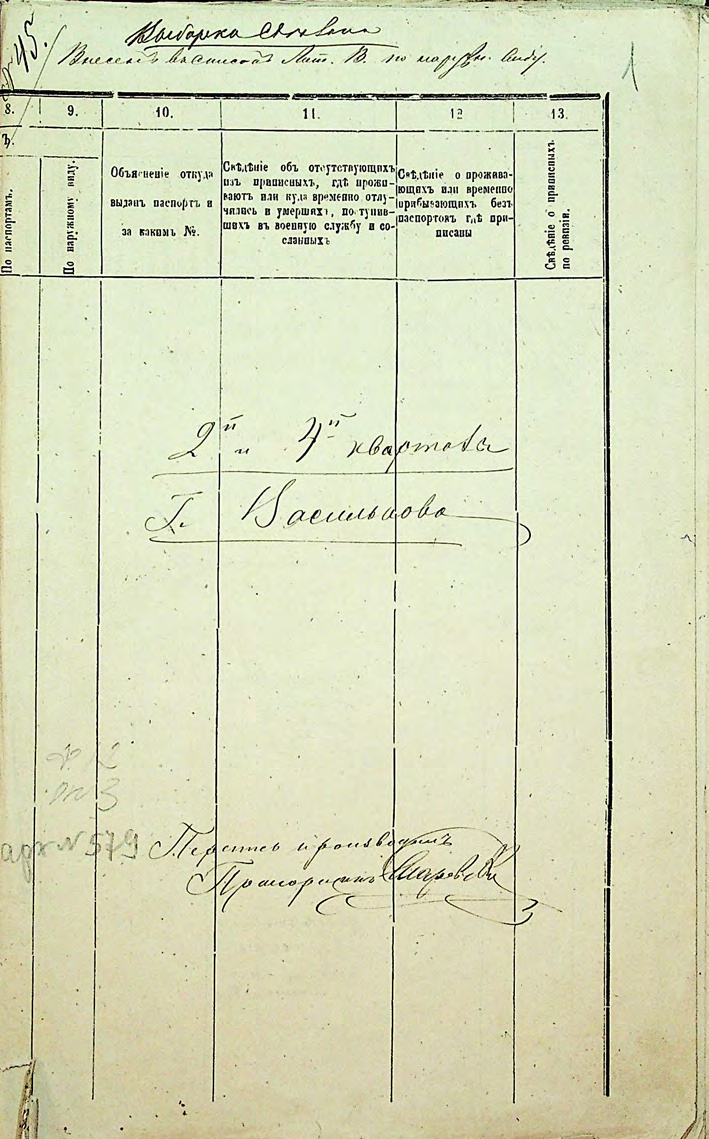 45.
Выборка
Внесенъ въ списокъ Лит. В. по наружн. виду.
1
8. 9. 10. 11. 12 13.
З.
По паспортамъ.
По наружному виду.
Объясненіе откуда
выданъ паспортъ и
за какимъ №.
Свѣдѣніе объ отсутствующихъ
изъ приписныхъ, гдѣ прожи-
ваютъ или куда временно отлу-
чились и умершихъ, поступив-
шихъ въ военную службу и со-
сланныхъ
Свѣдѣніе о прожива-
ющихъ или временно
прибывающихъ безъ
паспортовъ гдѣ при-
писаны
Свѣдѣніе о приписныхъ
по ревизіи.
2й и 4й квартала
Г. Василькова
Ф. 2
оп 3
арх N 579
Перепись производилъ